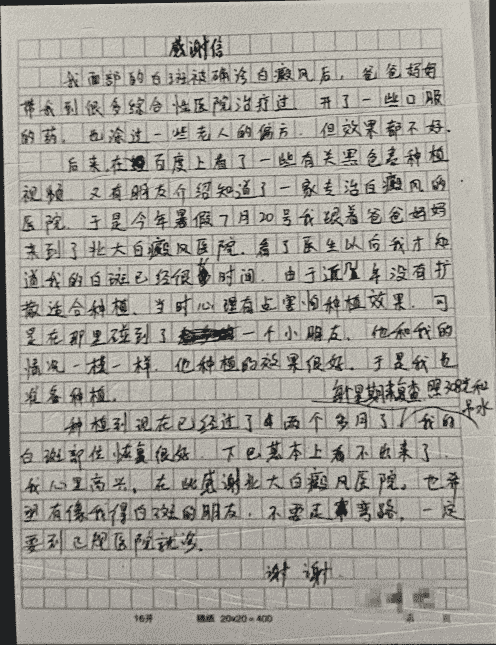 感谢信
我面部的白斑被确诊白癜风后，爸爸妈妈
带我到很多综合性医院治疗过 开了一些口服
的药，也涂过一些老人的偏方，但效果都不好。
后来，在百度上看了一些有关黑色素种植
视频 又有朋友介绍知道了一家专治白癜风的
医院。于是今年暑假7月20号我跟着爸爸妈妈
来到了北大白癜风医院，看了医生以后我才知
道我的白斑已经很 时间，由于近 年没有扩
散适合种植。当时心理有点害怕种植效果，可
是在那里碰到了一个小朋友，他和我的
情况一模一样，他种植的效果很好。于是我也
准备种植。
每星期来复查 照308光和
吊水
种植到现在已经过了两个多月了，我的
白斑部位恢复很好，下巴基本上看不出来了。
我心里高兴，在此感谢北大白癜风医院。也希
望有像我得白斑的朋友，不要走弯路，一定
要到正规医院就诊。
谢谢
16开 20×20=400 页